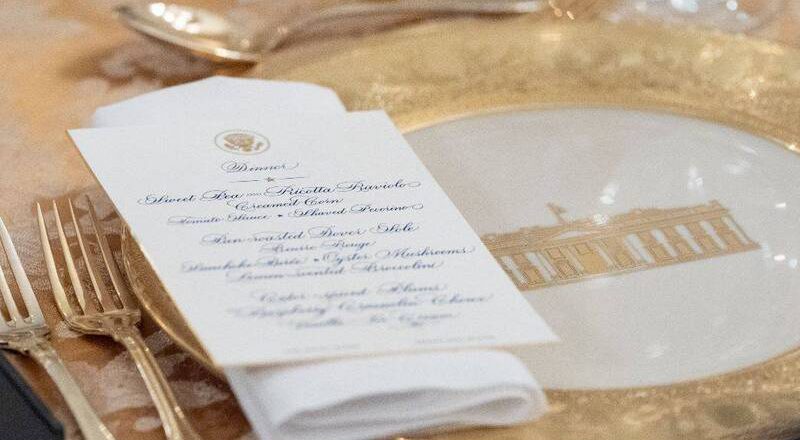 Dinner
Sweet Pea AND Ricotta Raviolo
Creamed Corn
Tomato Sauce • Shaved Pecorino
Pan-roasted Dover Sole
Beurre Rouge
Sunchoke • Oyster Mushrooms
Lemon-scented Broccolini
Plums
Raspberry Croustade
Ice Cream